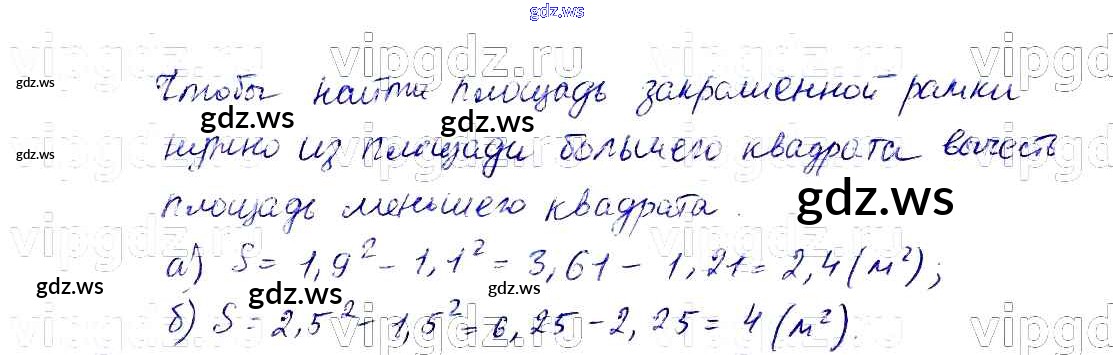 gdz.ws
vipgdz.ru vipgdz.ru vipgdz.ru vipgdz
gdz.ws
Чтобы найти площадь закрашенной рамки
gdz.ws gdz.ws
нужно из площади большего квадрата вычесть
gdz.ws
площадь меньшего квадрата.
gdz.ws
vipgdz.ru vipgdz.ru vipgdz.ru vipgdz
а) S = 1,9² - 1,1² = 3,61 - 1,21 = 2,4 (м²);
gdz.ws gdz.ws gdz.ws
б) S = 2,5² - 1,5² = 6,25 - 2,25 = 4 (м²).
vipgdz.ru vipgdz.ru vipgdz.ru vipgdz